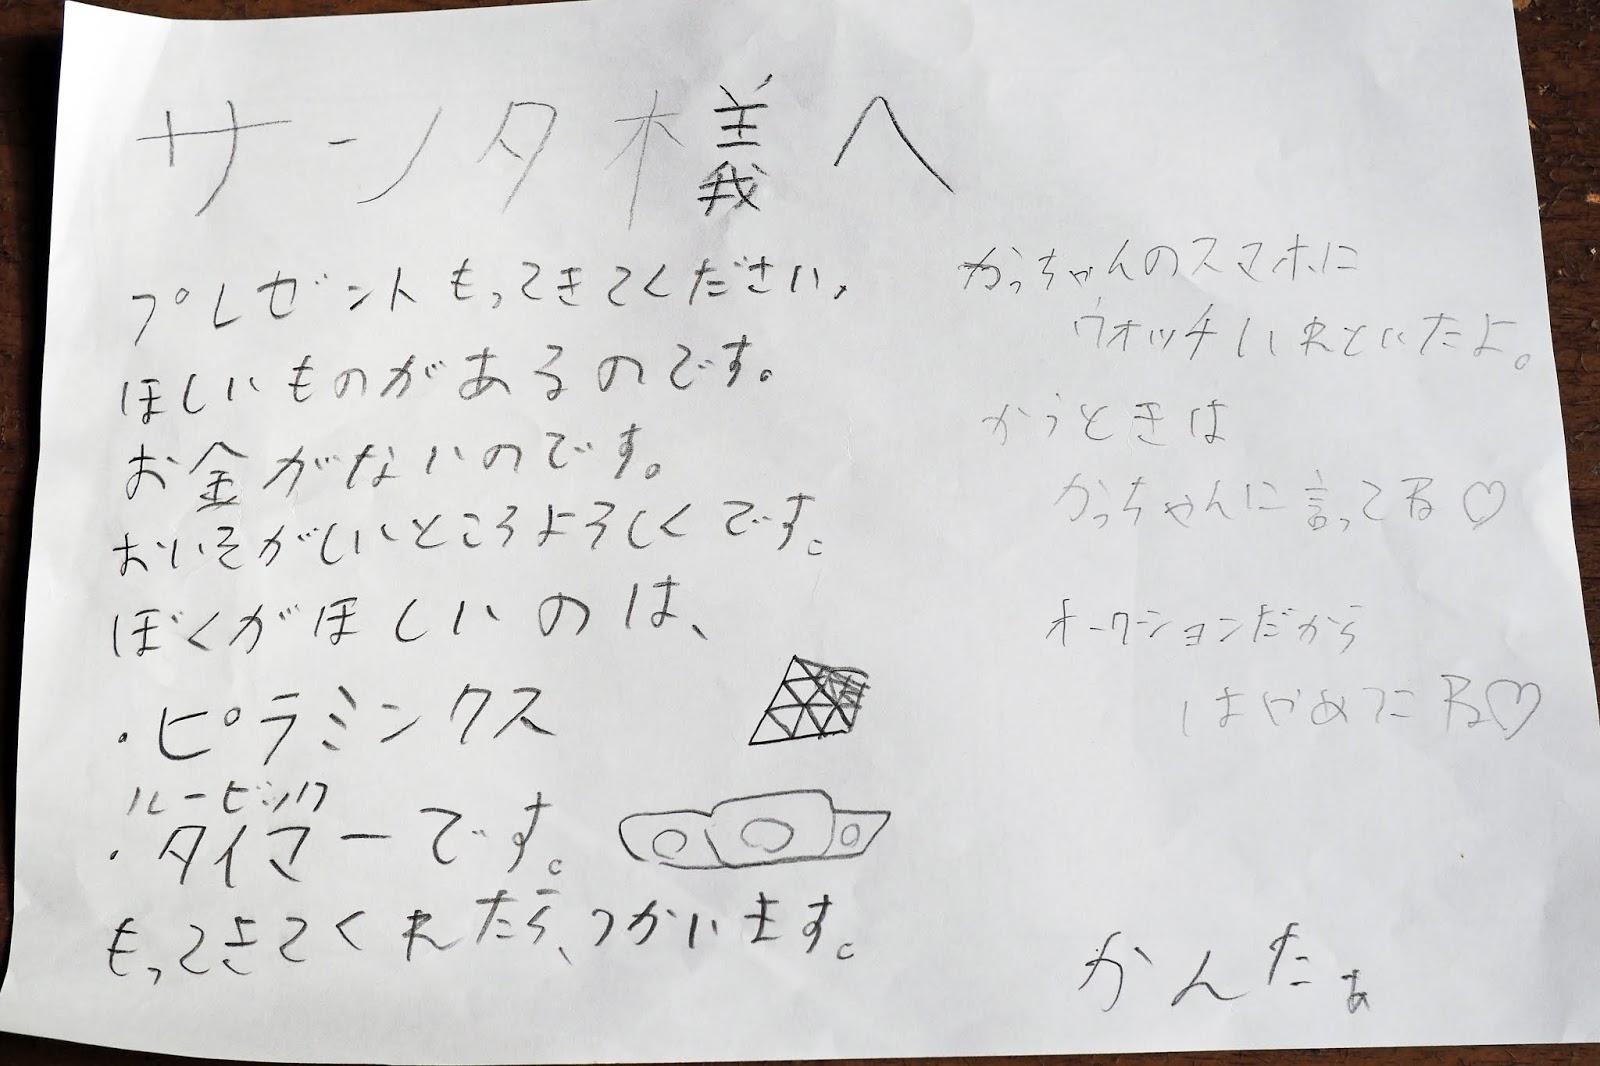 サンタ様へ
プレゼントもってきてください、
ほしいものがあるのです。
お金がないのです。
おいそがしいところよろしくです。
ぼくがほしいのは、
・ピラミンクス
ルービック
・タイマーです。
もってきてくれたら、つかいます。
かっちゃんのスマホに
ウォッチいれといたよ。
かうときは
かっちゃんに言ってね♡
オークションだから
はやめにね♡
かんたぁ